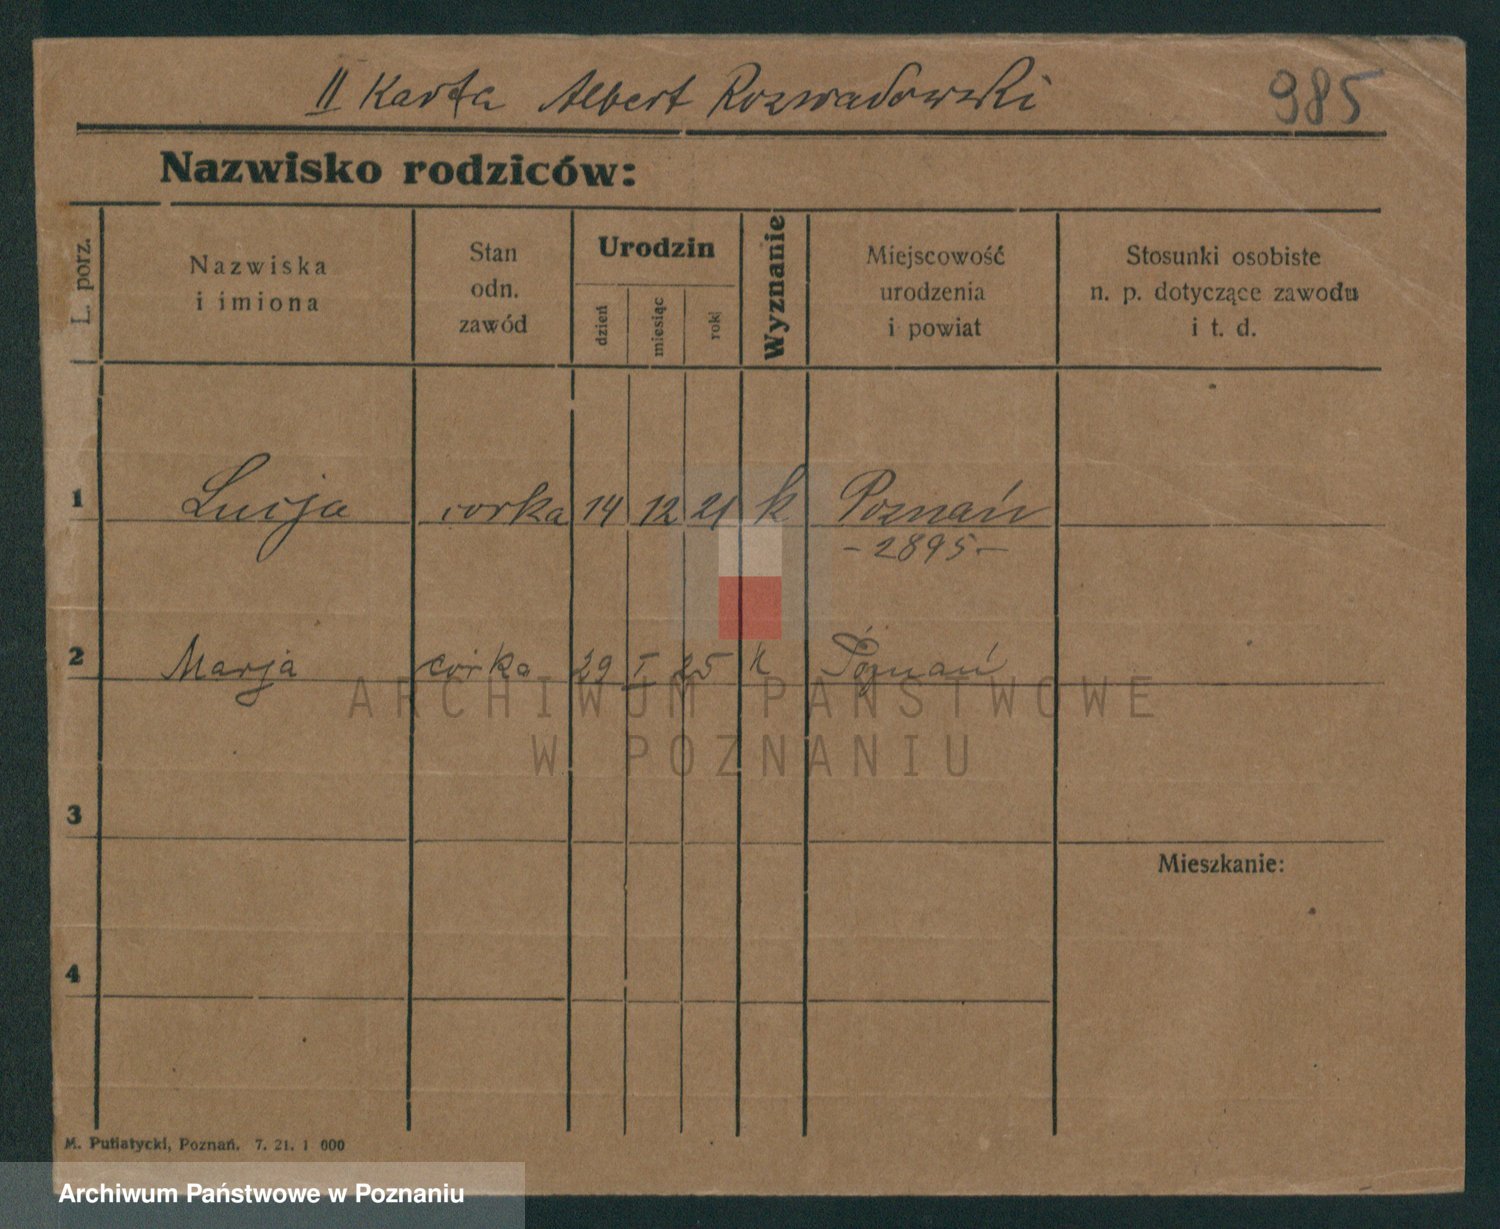 II Karta Albert Rozwadowski 985
Nazwisko rodziców:
L. porz.
Nazwiska
i imiona
Stan
odn.
zawód
Urodzin
dzień
miesiąc
rok
Wyznanie
Miejscowość
urodzenia
i powiat
Stosunki osobiste
n. p. dotyczące zawodu
i t. d.
1 Lucja corka 14 12 21 k Poznań
- 2895 -
2 Marja córka 29 I 25 k Poznań
3
Mieszkanie:
4
M. Putiatycki, Poznań. 7. 21. 1 000
ARCHIWUM PAŃSTWOWE
W POZNANIU
Archiwum Państwowe w Poznaniu